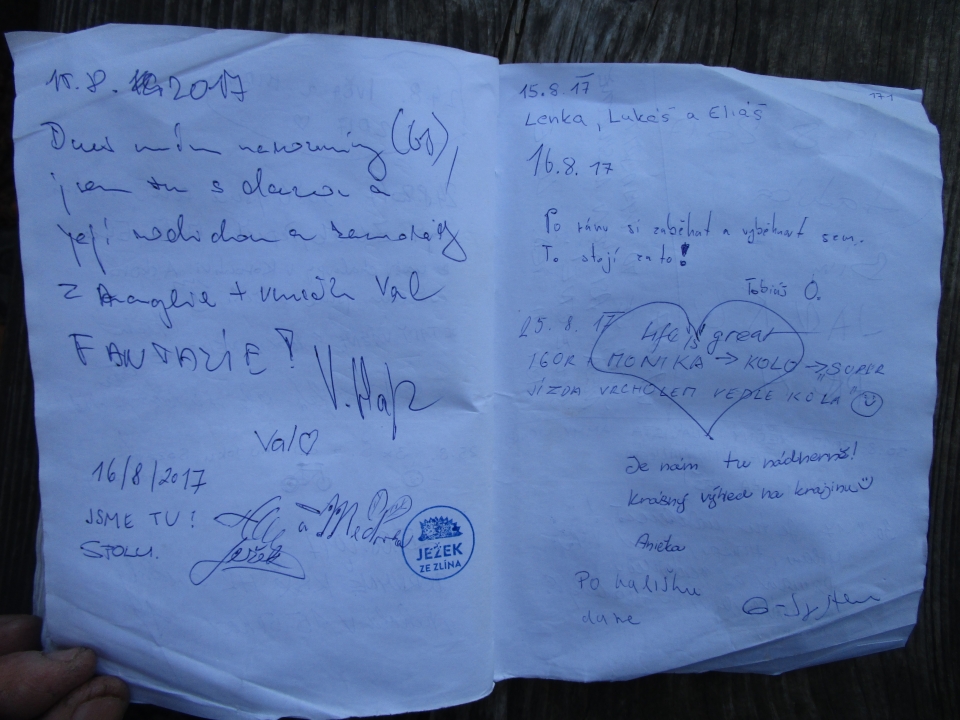 15.8.2017
Dnes mám narozeniny (61),
jsem tu s dcerou a
její rodinou a kamarády
z Anglie + vnučk Val
FANTAZIE!
Val♡
16/8/2017
JSME TU!
STOLU.
a
Ježek
JEŽEK
ZE ZLÍNA
15.8.17
Lenka, Lukáš a Eliáš
16.8.17
Po ránu si zaběhat a vyběhnout sem.
To stojí za to!
Tobiáš Ó.
25.8.17
Life is great
IGOR + MONIKA → KOLO → "SUPER
JÍZDA VRCHOLEM VEDLE KOLA" ☺
Je nám tu nádherně!
Krásný výhled na krajinu ☺
Anička
Po kalíšku
dame
171